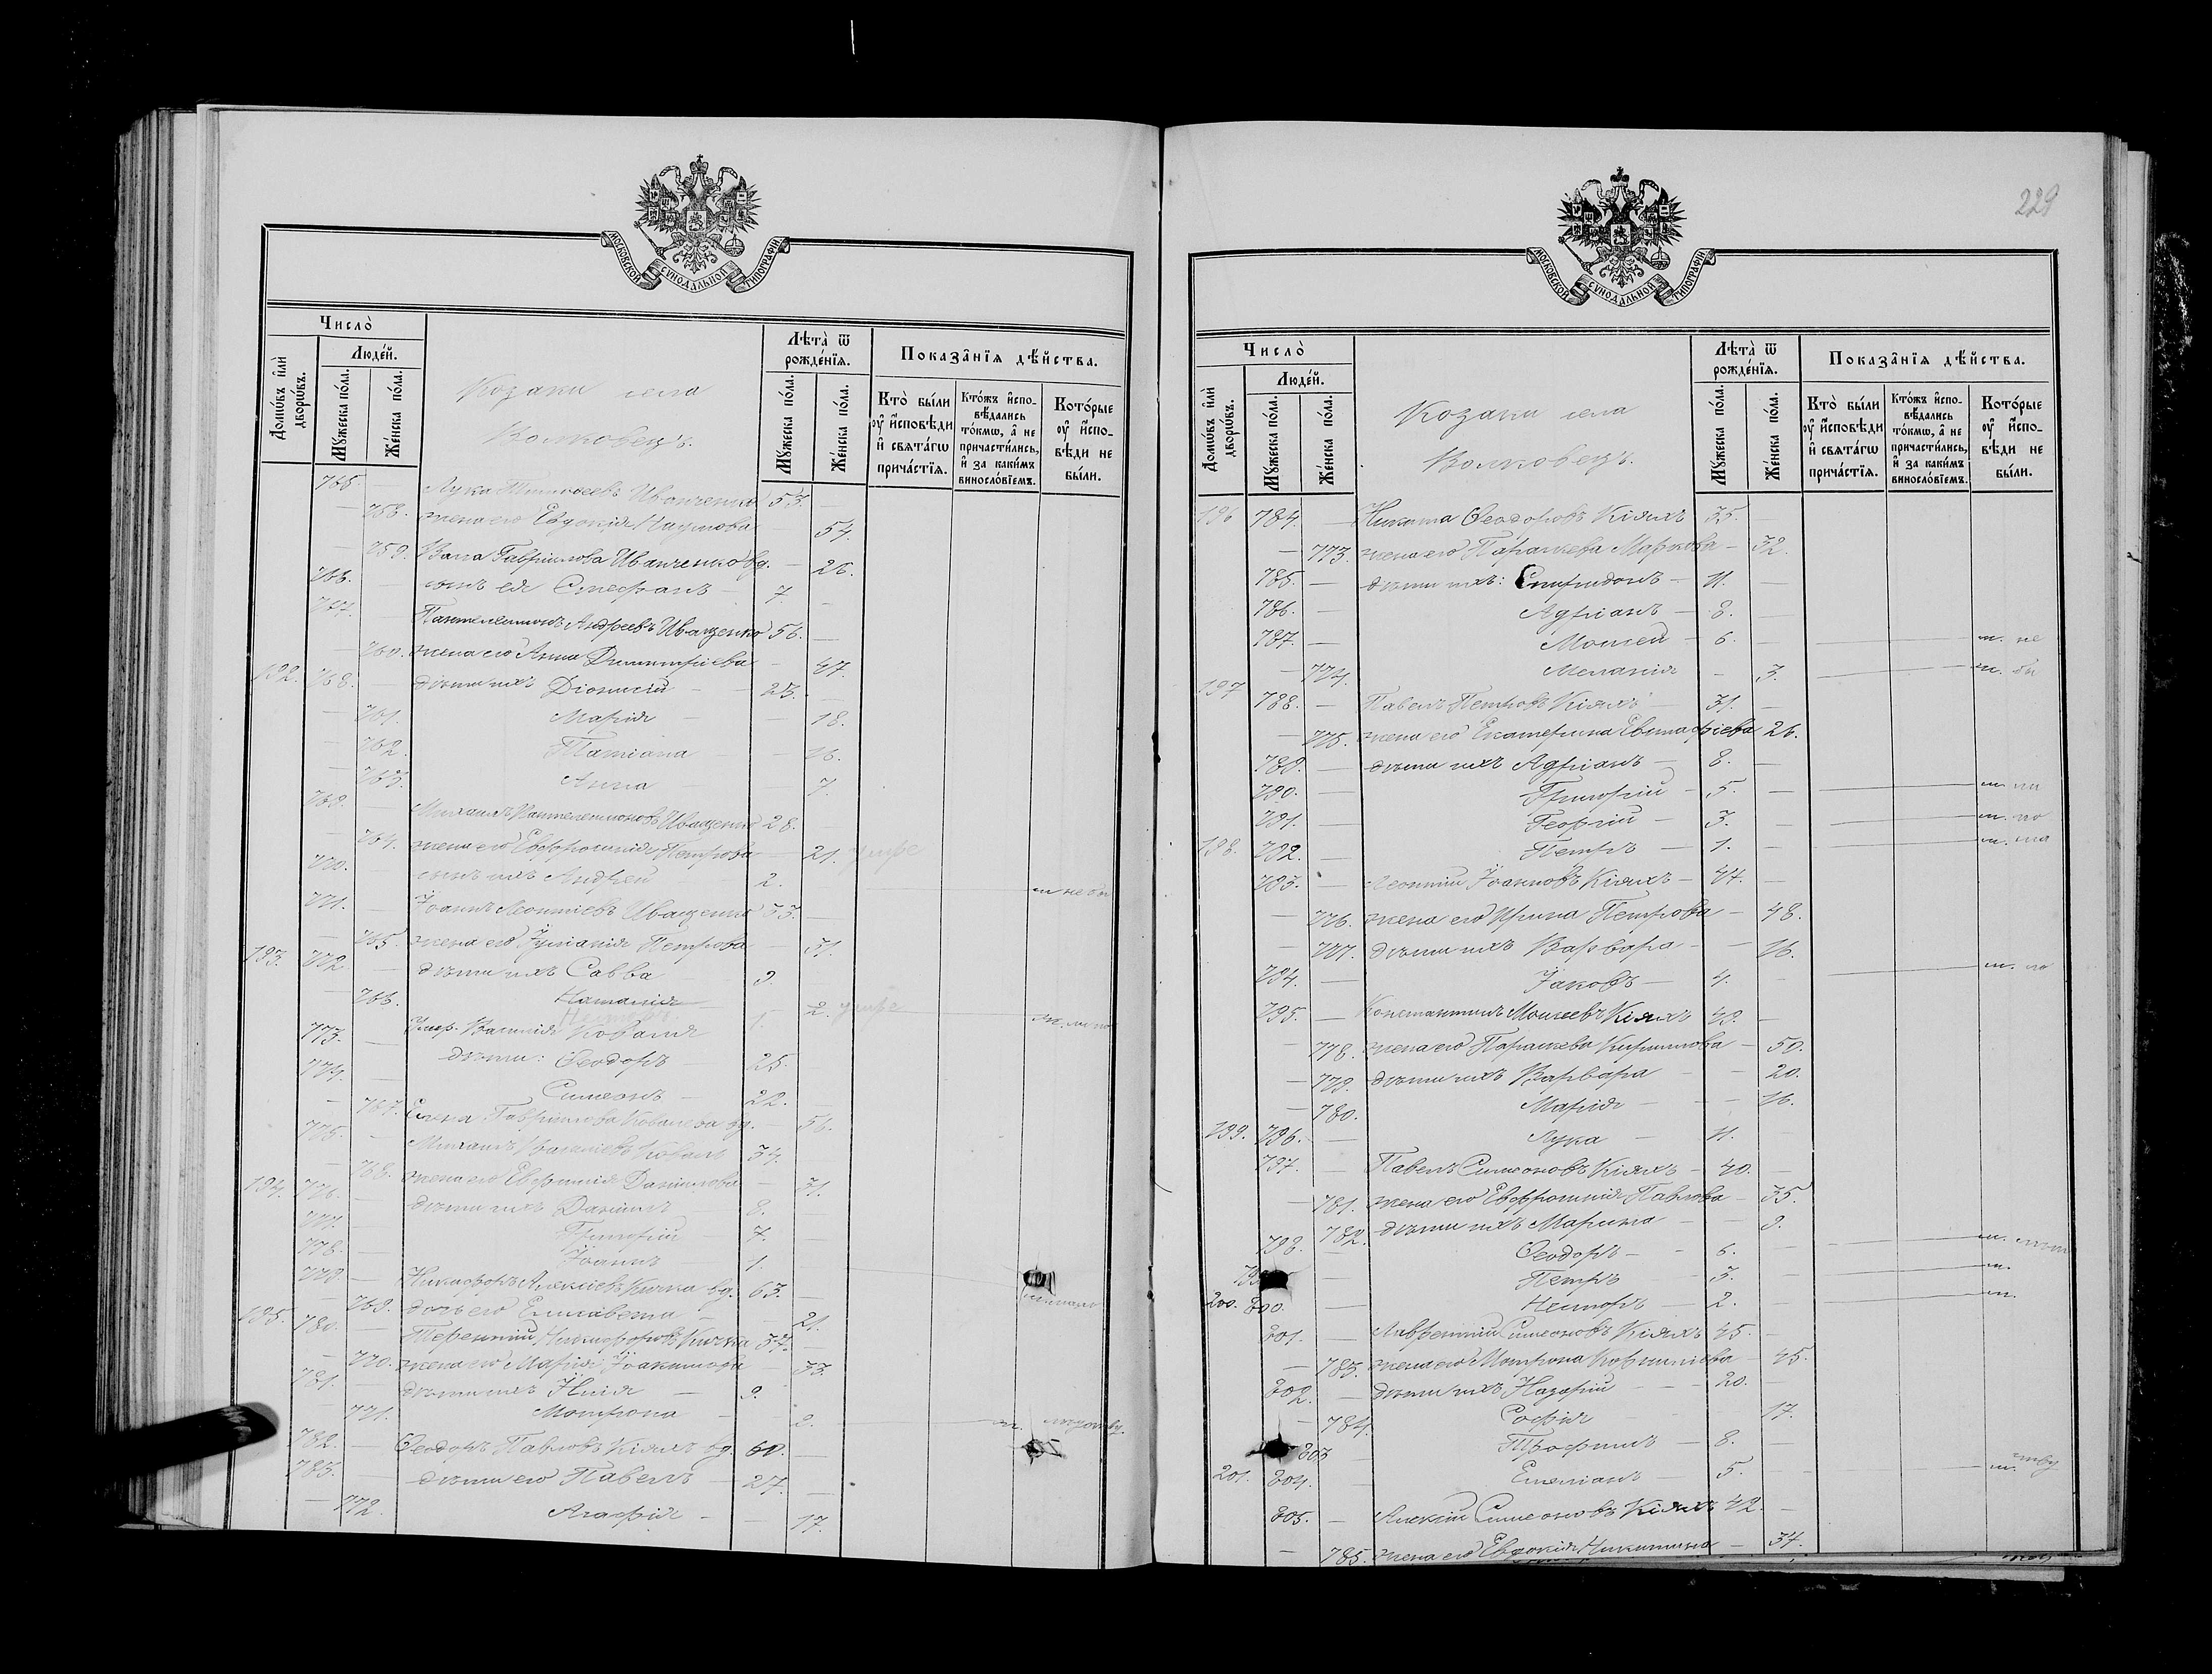 МОСКОВСКОЙ СУНОДАЛЬНОЙ ТИПОГРАФІИ
Число̀
Домѡ́въ и҆лѝ дворѡ́въ.
Люде́й.
Мꙋ́жеска по́ла.
Же́нска по́ла.
Козаки села
Волковецъ.
Лѣта̀ ѿ рожде́нїѧ.
Мꙋ́жеска по́ла.
Же́нска по́ла.
Показа̑нїѧ дѣ́йства.
Кто̀ бы́ли ᲂу҆ и҆сповѣ́ди и҆ свѧта́гѡ прича́стїѧ.
Кто́жъ и҆сповѣ́дались то́кмѡ, а҆ не причасти́лись, и҆ за каки́мъ виносло́вїемъ.
Кото́рые ᲂу҆ и҆сповѣ́ди не бы́ли.
765. — Лука Иванченко 53. —
— 758. жена его Евдокія Наумова 54.
— 759. Васса Гавриилова Иванченкова вд. — 26.
766. — сынъ ея Стефанъ — 7. —
767. Пантелеимонъ Андреевъ Иващенко 56. —
— 760. жена его Анна Димитріева — 47.
192. 768. — дѣти ихъ Діонисій — 23. —
— 761. Марія — 18.
— 762. Татіана — 16.
— 763. Анна — 7.
769. — Михаилъ Пантелеимоновъ Иващенко 28.
— 764. жена его Евфросинія Петрова — 21.
770. сынъ ихъ Андрей 2. м. не бы
771. — Іоаннъ Леонтіевъ Иващенко 33. —
— 765. жена его Іуліанія Петрова — 31.
193. 772. — дѣти ихъ Савва — 9.
— 766. Наталія 2.
773. — Умер. Василія Коваля
дѣти: Ѳеодоръ — 25.
774. — Симеонъ — 22. —
— 767. Елена Гавриилова Ковалева вд. — 56.
775. — Михаилъ Василіевъ Коваль 34. —
— 768. жена его Евфимія Даніилова — 31.
194. 776. — дѣти ихъ Даніилъ 8.
777. — Григорій — 7. —
778. — Іоаннъ — 1. —
779. — Никифоръ Алексіевъ Кичка вд. 63. —
— 769. дочь его Елисавета — 21.
195. 780. — Терентій Никифоровъ Кичка 34. —
— 770. жена его Марія Іоакимова — 33.
781. — дѣти ихъ Илія — 9.
— 771. Мотрона — 2. м.
782. — Ѳеодоръ Павловъ Кіяхъ вд. 60. —
783. — дѣти его Павелъ — 27. —
— 772. Агафія — — 17.
229
МОСКОВСКОЙ СУНОДАЛЬНОЙ ТИПОГРАФІИ
Число̀
Домѡ́въ и҆лѝ дворѡ́въ.
Люде́й.
Мꙋ́жеска по́ла.
Же́нска по́ла.
Козаки села
Волковецъ.
Лѣта̀ ѿ рожде́нїѧ.
Мꙋ́жеска по́ла.
Же́нска по́ла.
Показа̑нїѧ дѣ́йства.
Кто̀ бы́ли ᲂу҆ и҆сповѣ́ди и҆ свѧта́гѡ прича́стїѧ.
Кто́жъ и҆сповѣ́дались то́кмѡ, а҆ не причасти́лись, и҆ за каки́мъ виносло́вїемъ.
Кото́рые ᲂу҆ и҆сповѣ́ди не бы́ли.
196 784. — Никита Ѳеодоровъ Кіяхъ 35. —
— 773. жена его Параскева Маркова — 32.
785. — дѣти ихъ: Спиридонъ — 11. —
786. — Адріанъ — 8. —
787. — Моисей — 6. — м. не
— 774. Меланія — 3. м. бы
197 788. — Павелъ Петровъ Кіяхъ 31. —
— 775. жена его Екатерина Евстафіева 26.
789. — дѣти ихъ Адріанъ — 8. —
790. — Григорій — 5. — м. ли
791. — Георгій — 3. — м. по
198. 792. — Петръ — 1. — м. ма
793. — Леонтій Іоанновъ Кіяхъ — 47. —
— 776. жена его Ирина Петрова — 48.
— 777. дѣти ихъ Варвара — — 16.
794. — Іаковъ — 4. — м. ло
795. — Константинъ Моисеевъ Кіяхъ 49. —
— 778. жена его Параскева Кириллова — 50.
— 779. дѣти ихъ Варвара — — 20.
— 780. Марія — — 16.
199. 796. — Лука — 11. —
797. — Павелъ Симеоновъ Кіяхъ — 40. —
— 781. жена его Евфросинія Павлова — 35.
782. дѣти ихъ Марина — — 9.
798. — Ѳеодоръ — 6. — м. лѣт
799 — Петръ — 3. — м.
200. 800. — Несторъ — 2. — м.
801. — Лаврентій Симеоновъ Кіяхъ 45. —
— 783. жена его Мотрона Корниліева — 45.
802. — дѣти ихъ Назарій — 20. —
— 784. Софія — — 17.
803 — Трофимъ — 8. —
201. 804. — Емеліанъ — 5. — м. ству
805. — Алексій Симеоновъ Кіяхъ 42. —
— 785. жена его Евдокія Никитина — 34.